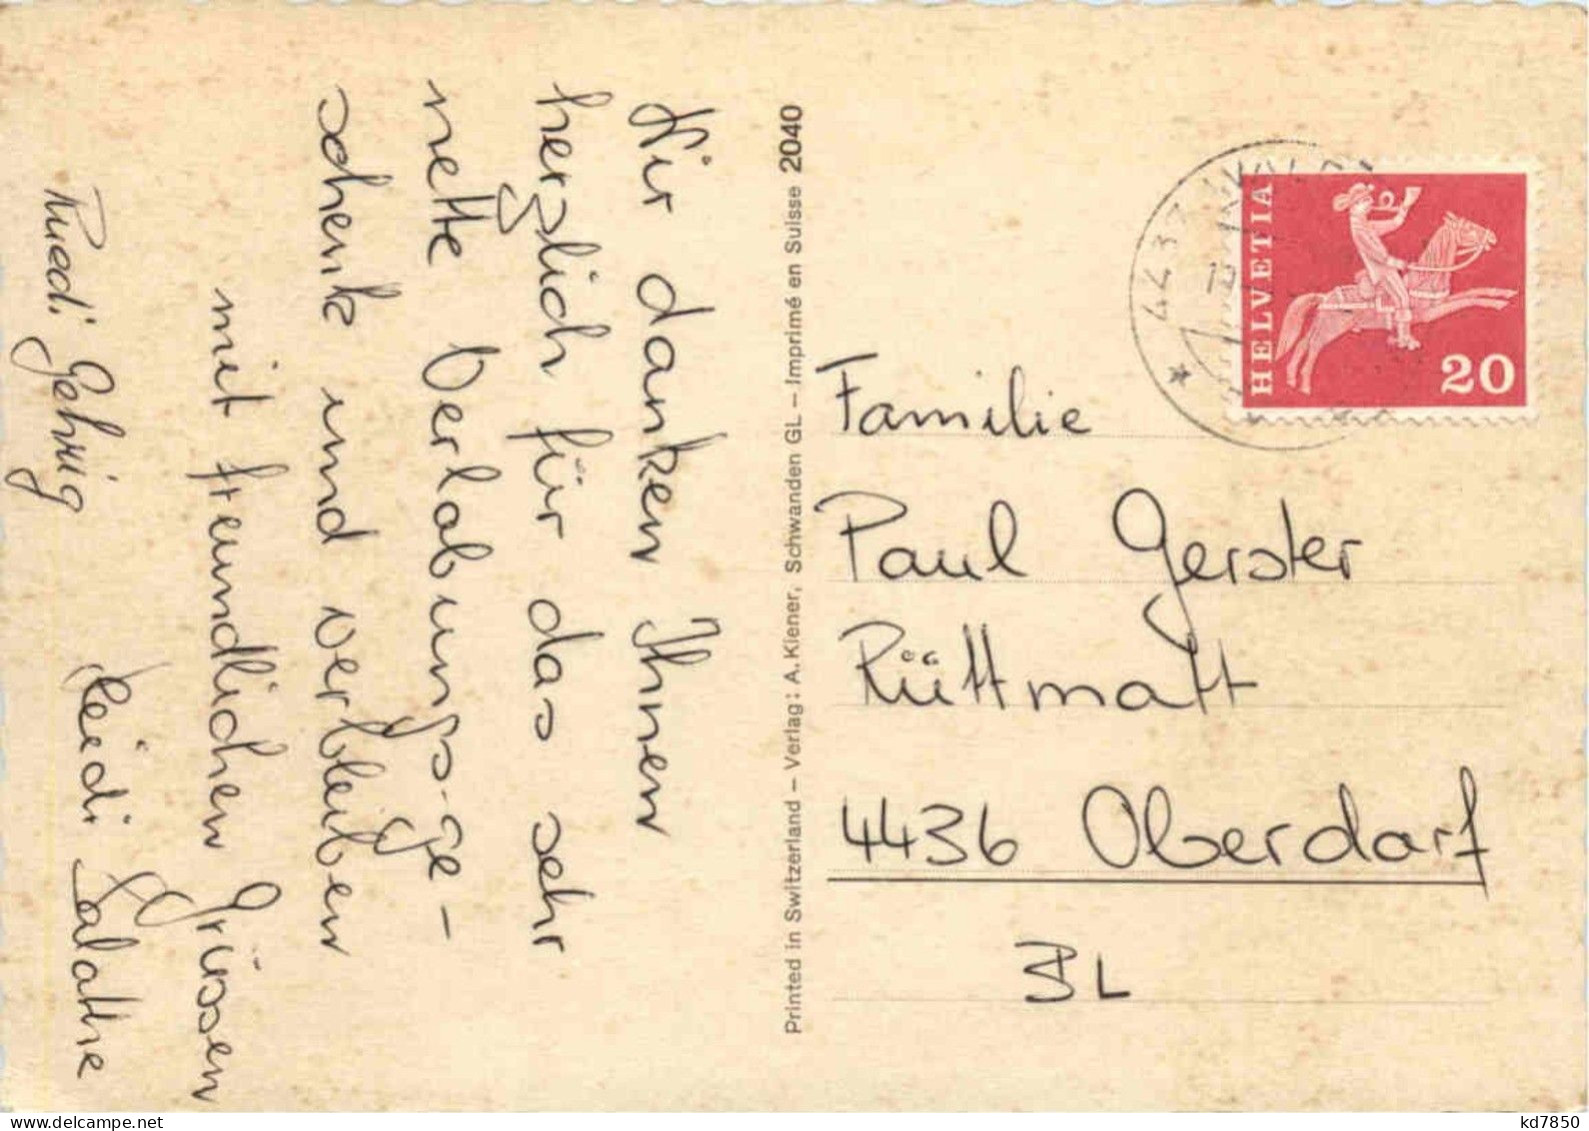 Wir danken Ihnen
herzlich für das sehr
nette Verlobungs-ge-
schenk und verbleiben
mit freundlichen Grüssen
Ruedi Gehrig Heidi Salathe
Printed in Switzerland – Verlag: A. Kiener, Schwanden GL – Imprimé en Suisse 2040
4437
HELVETIA
20
Familie
Paul Gerster
Rüttmatt
4436 Oberdorf
BL
delcampe.net
kd7850